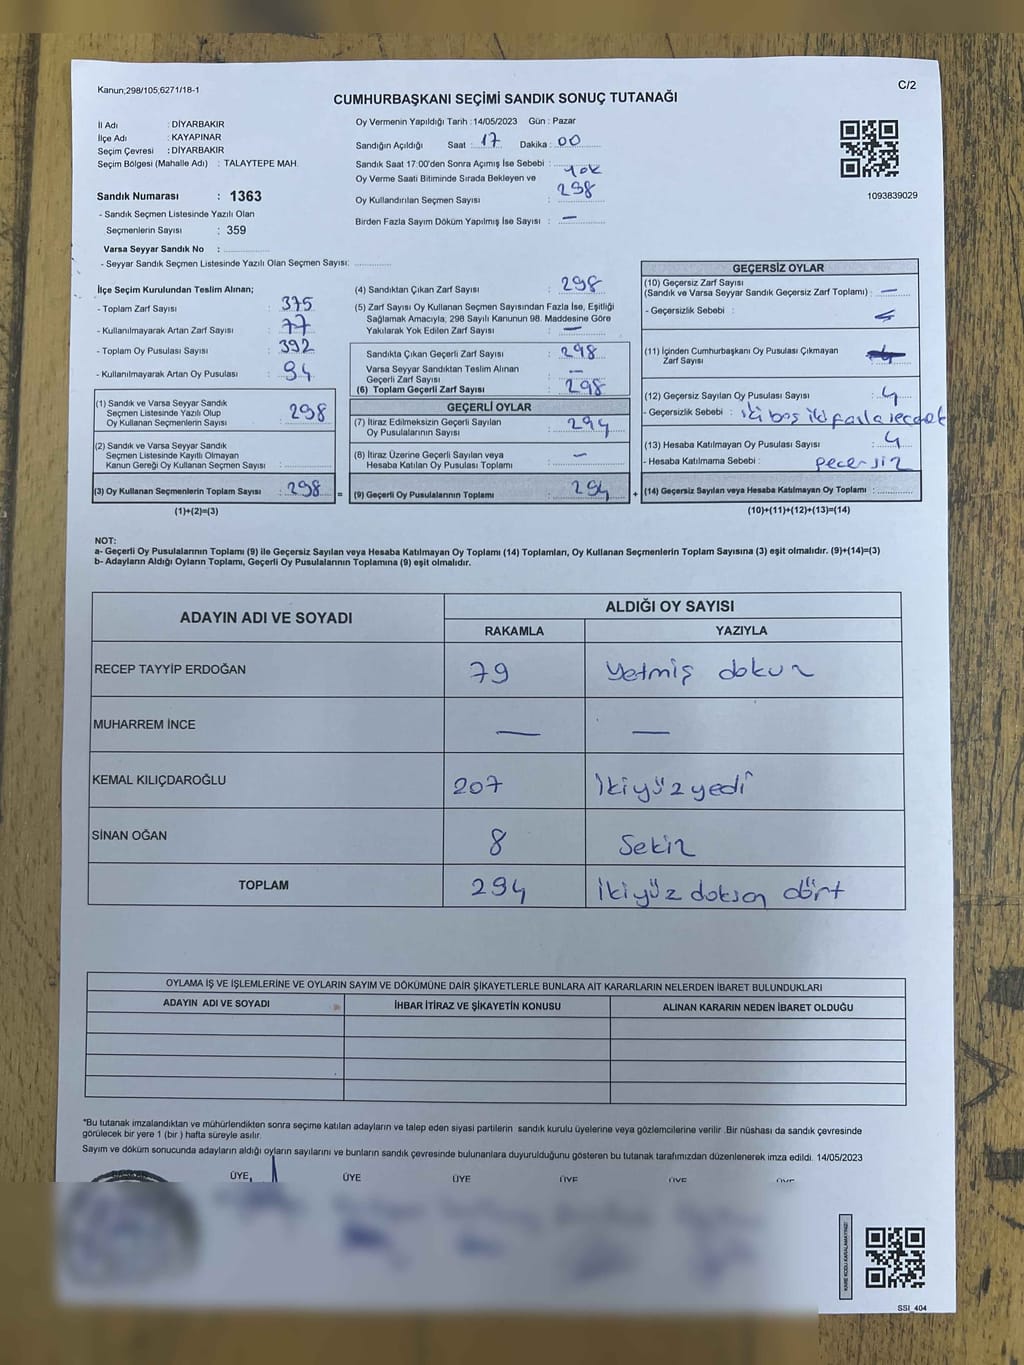 Kanun;298/105;6271/18-1
C/2
CUMHURBAŞKANI SEÇİMİ SANDIK SONUÇ TUTANAĞI
İl Adı : DİYARBAKIR
İlçe Adı : KAYAPINAR
Seçim Çevresi : DİYARBAKIR
Seçim Bölgesi (Mahalle Adı) : TALAYTEPE MAH.
Sandık Numarası : 1363
- Sandık Seçmen Listesinde Yazılı Olan
Seçmenlerin Sayısı : 359
Varsa Seyyar Sandık No :
- Seyyar Sandık Seçmen Listesinde Yazılı Olan Seçmen Sayısı:
Oy Vermenin Yapıldığı Tarih : 14/05/2023 Gün : Pazar
Sandığın Açıldığı Saat : 17 Dakika : 00
Sandık Saat 17:00'den Sonra Açımış İse Sebebi :
Oy Verme Saati Bitiminde Sırada Bekleyen ve yok
Oy Kullandırılan Seçmen Sayısı : 298
Birden Fazla Sayım Döküm Yapılmış İse Sayısı : —
1093839029
İlçe Seçim Kurulundan Teslim Alınan;
- Toplam Zarf Sayısı : 375
- Kullanılmayarak Artan Zarf Sayısı : 77
- Toplam Oy Pusulası Sayısı : 392
- Kullanılmayarak Artan Oy Pusulası : 94
(1) Sandık ve Varsa Seyyar Sandık
Seçmen Listesinde Yazılı Olup
Oy Kullanan Seçmenlerin Sayısı : 298
(2) Sandık ve Varsa Seyyar Sandık
Seçmen Listesinde Kayıtlı Olmayan
Kanun Gereği Oy Kullanan Seçmen Sayısı :
(3) Oy Kullanan Seçmenlerin Toplam Sayısı : 298 =
(1)+(2)=(3)
(4) Sandıktan Çıkan Zarf Sayısı : 298
(5) Zarf Sayısı Oy Kullanan Seçmen Sayısından Fazla İse, Eşitliği
Sağlamak Amacıyla; 298 Sayılı Kanunun 98. Maddesine Göre
Yakılarak Yok Edilen Zarf Sayısı : —
Sandıkta Çıkan Geçerli Zarf Sayısı : 298
Varsa Seyyar Sandıktan Teslim Alınan
Geçerli Zarf Sayısı : —
(6) Toplam Geçerli Zarf Sayısı : 298
GEÇERLİ OYLAR
(7) İtiraz Edilmeksizin Geçerli Sayılan
Oy Pusulalarının Sayısı : 294
(8) İtiraz Üzerine Geçerli Sayılan veya
Hesaba Katılan Oy Pusulası Toplamı : —
(9) Geçerli Oy Pusulalarının Toplamı : 294 +
GEÇERSİZ OYLAR
(10) Geçersiz Zarf Sayısı
(Sandık ve Varsa Seyyar Sandık Geçersiz Zarf Toplamı) : —
- Geçersizlik Sebebi :
(11) İçinden Cumhurbaşkanı Oy Pusulası Çıkmayan
Zarf Sayısı :
(12) Geçersiz Sayılan Oy Pusulası Sayısı : 4
- Geçersizlik Sebebi : iki boş iki fazla
(13) Hesaba Katılmayan Oy Pusulası Sayısı : 4
- Hesaba Katılmama Sebebi : gecersiz
(14) Geçersiz Sayılan veya Hesaba Katılmayan Oy Toplamı :
(10)+(11)+(12)+(13)=(14)
NOT:
a- Geçerli Oy Pusulalarının Toplamı (9) ile Geçersiz Sayılan veya Hesaba Katılmayan Oy Toplamı (14) Toplamları, Oy Kullanan Seçmenlerin Toplam Sayısına (3) eşit olmalıdır. (9)+(14)=(3)
b- Adayların Aldığı Oyların Toplamı, Geçerli Oy Pusulalarının Toplamına (9) eşit olmalıdır.
ADAYIN ADI VE SOYADI ALDIĞI OY SAYISI
RAKAMLA YAZIYLA
RECEP TAYYİP ERDOĞAN 79 Yetmiş dokuz
MUHARREM İNCE — —
KEMAL KILIÇDAROĞLU 207 İkiyüz yedi
SİNAN OĞAN 8 Sekiz
TOPLAM 294 İkiyüz doksan dört
OYLAMA İŞ VE İŞLEMLERİNE VE OYLARIN SAYIM VE DÖKÜMÜNE DAİR ŞİKAYETLERLE BUNLARA AİT KARARLARIN NELERDEN İBARET BULUNDUKLARI
ADAYIN ADI VE SOYADI İHBAR İTİRAZ VE ŞİKAYETİN KONUSU ALINAN KARARIN NEDEN İBARET OLDUĞU
*Bu tutanak imzalandıktan ve mühürlendikten sonra seçime katılan adayların ve talep eden siyasi partilerin sandık kurulu üyelerine veya gözlemcilerine verilir .Bir nüshası da sandık çevresinde
görülecek bir yere 1 (bir ) hafta süreyle asılır.
Sayım ve döküm sonucunda adayların aldığı oyların sayılarını ve bunların sandık çevresinde bulunanlara duyurulduğunu gösteren bu tutanak tarafımızdan düzenlenerek imza edildi. 14/05/2023
ÜYE ÜYE ÜYE ÜYE ÜYE ÜYE
KARE KODU KARALAMAYINIZ!
SSI_404